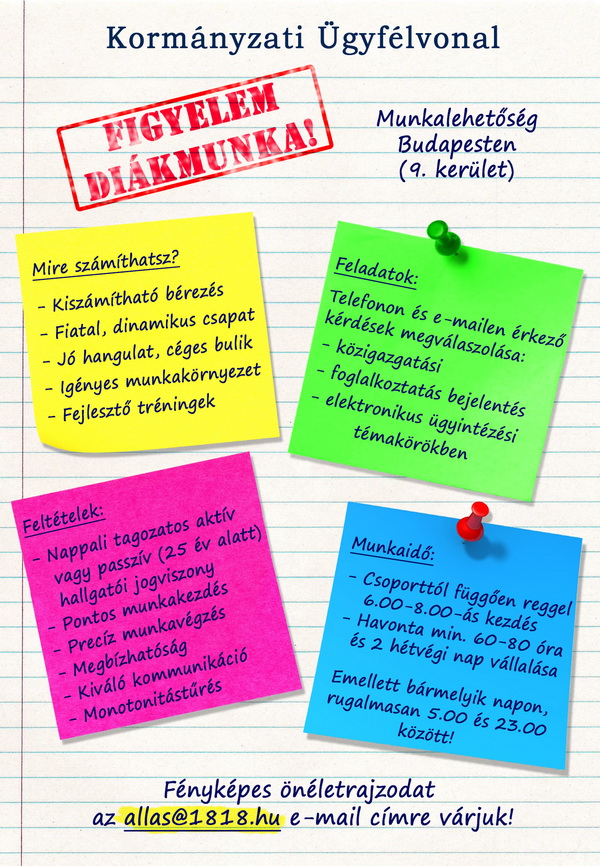 Kormányzati Ügyfélvonal
FIGYELEM
DIÁKMUNKA!
Munkalehetőség
Budapesten
(9. kerület)
Mire számíthatsz?
- Kiszámítható bérezés
- Fiatal, dinamikus csapat
- Jó hangulat, céges bulik
- Igényes munkakörnyezet
- Fejlesztő tréningek
Feladatok:
Telefonon és e-mailen érkező
kérdések megválaszolása:
- közigazgatási
- foglalkoztatás bejelentés
- elektronikus ügyintézési
témakörökben
Feltételek:
- Nappali tagozatos aktív
vagy passzív (25 év alatt)
hallgatói jogviszony
- Pontos munkakezdés
- Precíz munkavégzés
- Megbízhatóság
- Kiváló kommunikáció
- Monotonitástűrés
Munkaidő:
- Csoporttól függően reggel
6.00-8.00-ás kezdés
- Havonta min. 60-80 óra
és 2 hétvégi nap vállalása
Emellett bármelyik napon,
rugalmasan 5.00 és 23.00
között!
Fényképes önéletrajzodat
az allas@1818.hu e-mail címre várjuk!